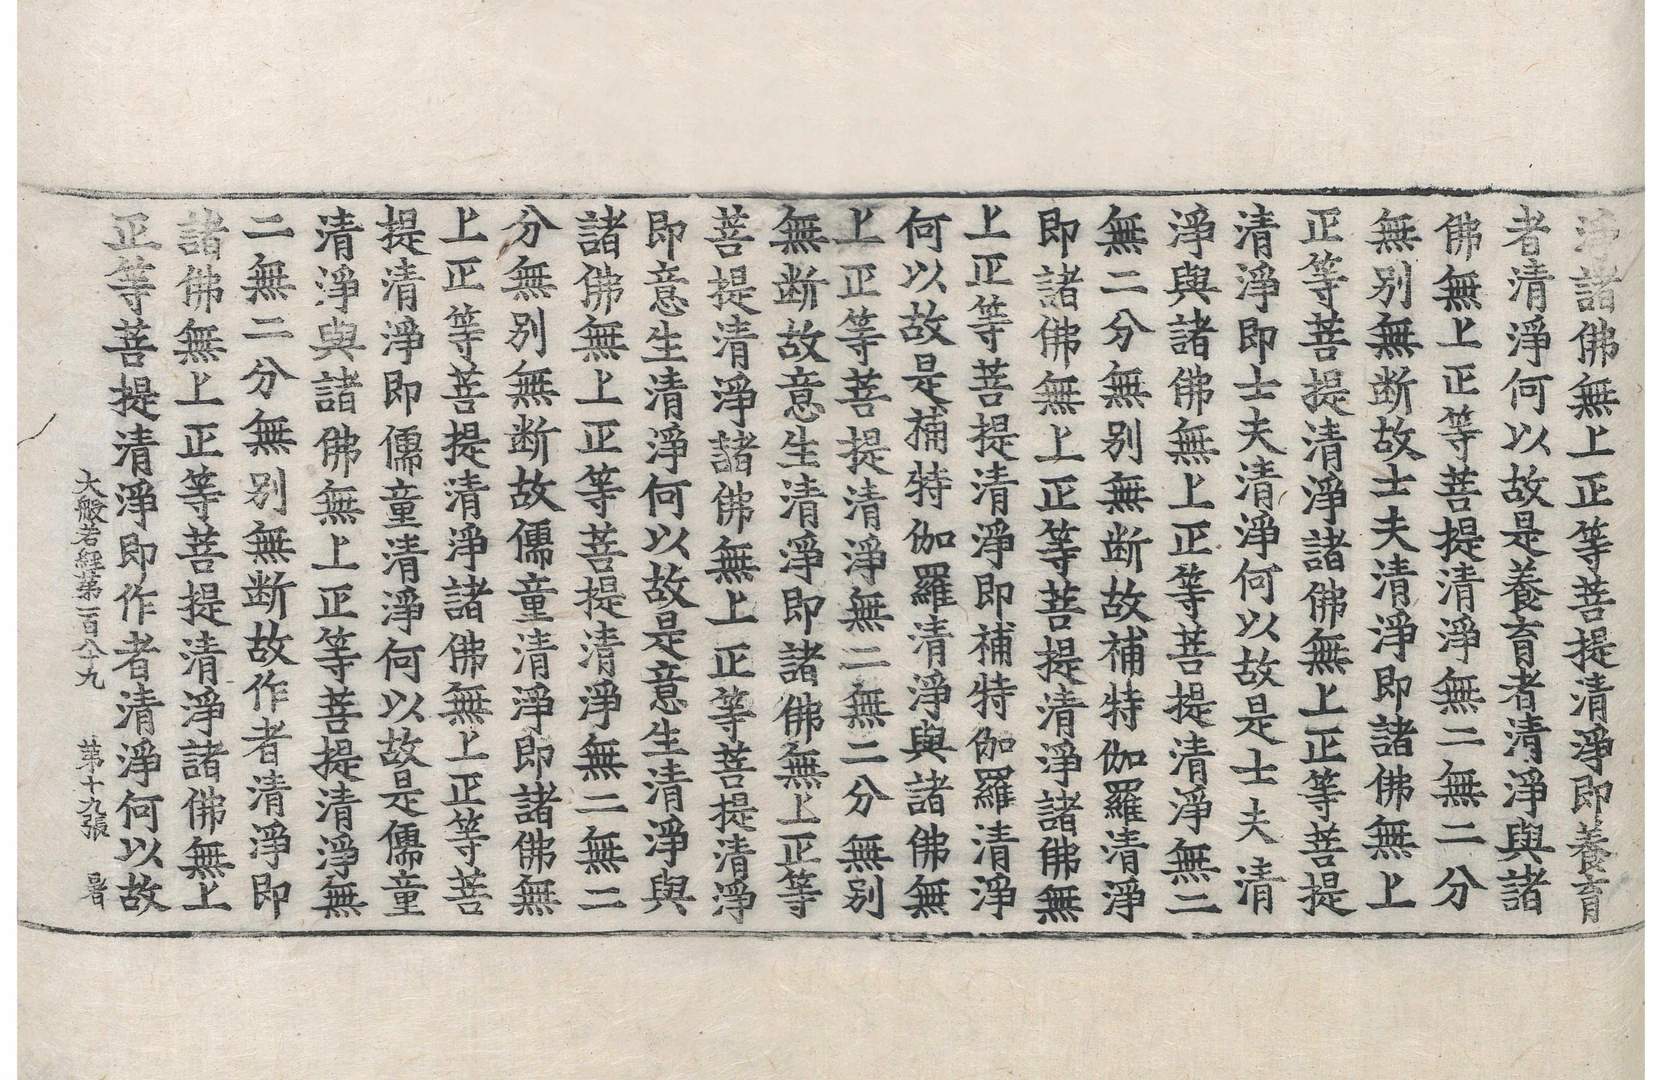 淨諸佛無上正等菩提清淨即養育
者清淨何以故是養育者清淨與諸
佛無上正等菩提清淨無二無二分
無别無断故士夫清淨即諸佛無上
正等菩提清淨諸佛無上正等菩提
清淨即士夫清淨何以故是士夫清
淨與諸佛無上正等菩提清淨無二
無二分無别無断故補特伽羅清淨
即諸佛無上正等菩提清淨諸佛無
上正等菩提清淨即補特伽羅清淨
何以故是補特伽羅清淨與諸佛無
上正等菩提清淨無二無二分無别
無断故意生清淨即諸佛無上正等
菩提清淨諸佛無上正等菩提清淨
即意生清淨何以故是意生清淨與
諸佛無上正等菩提清淨無二無二
分無别無断故儒童清淨即諸佛無
上正等菩提清淨諸佛無上正等菩
提清淨即儒童清淨何以故是儒童
清淨與諸佛無上正等菩提清淨無
二無二分無别無断故作者清淨即
諸佛無上正等菩提清淨諸佛無上
正等菩提清淨即作者清淨何以故
大般若經第一百八十九 第十九張 暑